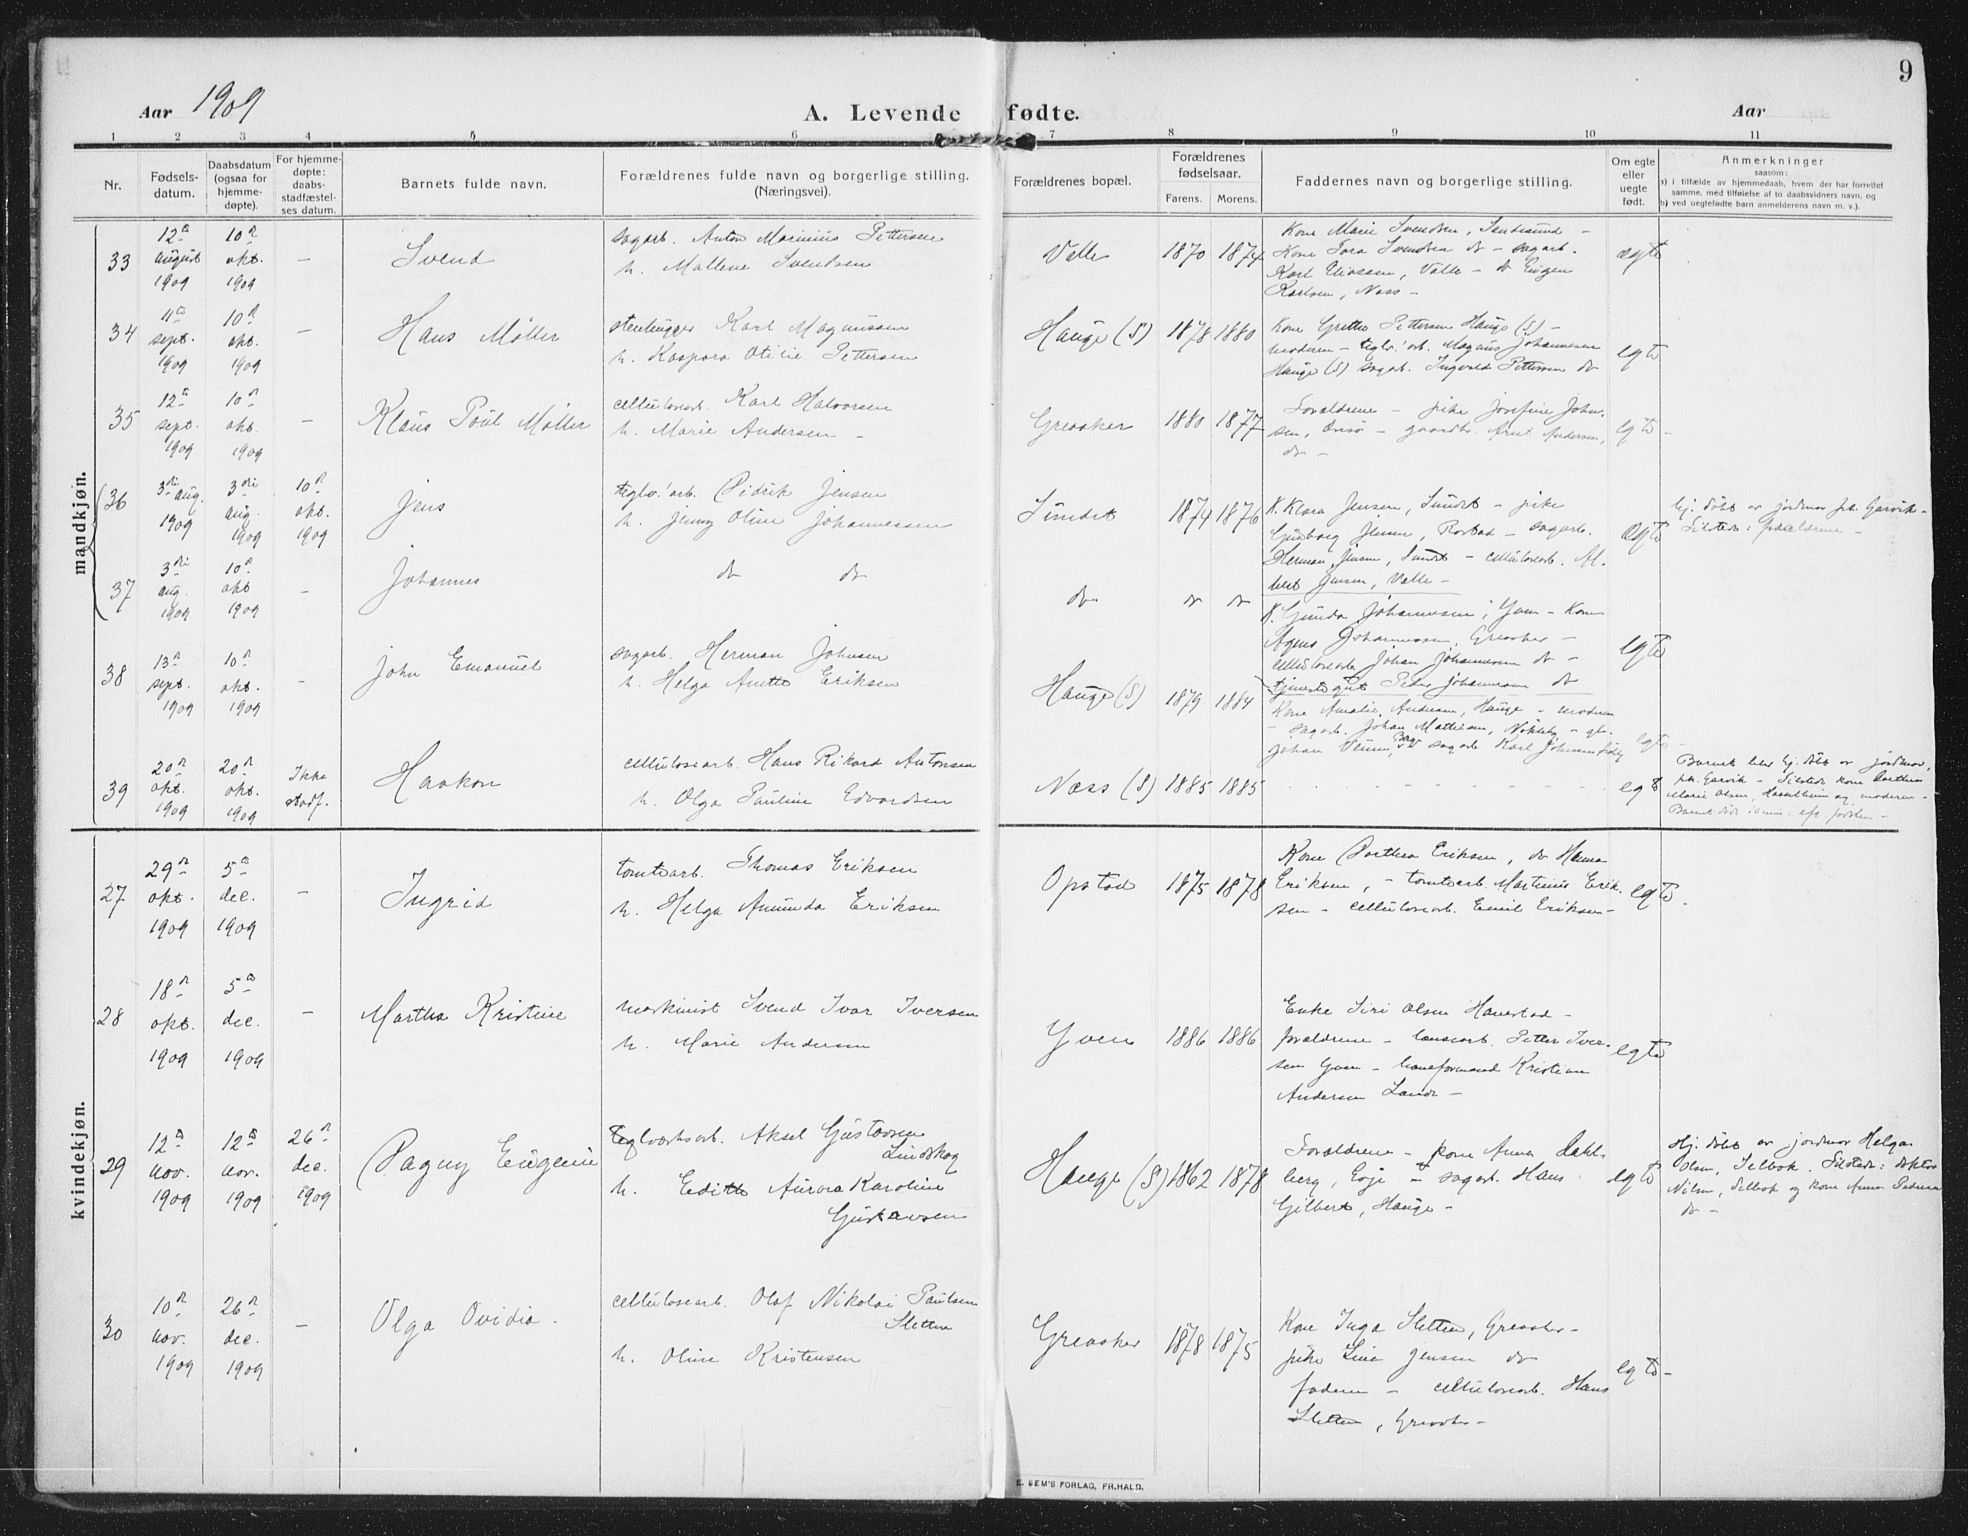 9
Aar 1909 A. Levende fødte. Aar
1 2 3 4 5 6 7 8 9 10 11
Nr. Fødselsdatum. Daabsdatum (ogsaa for hjemmedøpte). For hjemmedøpte: daabsstadfæstelses datum. Barnets fulde navn. Forældrenes fulde navn og borgerlige stilling. (Næringsvei). Forældrenes bopæl. Forældrenes fødselsaar. Farens. Morens. Faddernes navn og borgerlige stilling. Om egte eller uegte født. Anmerkninger
saasom:
a) i tilfælde av hjemmedaab, hvem der har forrettet
samme, med tilføielse af to daabsvidners navn, og
b) ved uegtefødte barn anmelderens navn m. v.).
mandkjøn.
33 12te august 1909 10de okt. 1909 – Svend
sagarb. Anton Marinius Pettersen
h. Mallene Svendsen
Valle 1870 1874
Kone Marie Svendsen, Sandesund –
Kone Tora Svendsen do – sagarb.
Karl Eliassen, Valle – do Eugen
Karlsen, Næss –
egte
34 11te sept. 1909 10de okt. 1909 – Hans Møller
stenhugger Karl Magnussen
h. Kaspara Otilie Pettersen
Hauge (S) 1878 1880
Kone Grethe Pettersen Hauge (S) –
moderen – teglv. arb. Magnus Johannesen
Hauge (S) sagarb. Ingvald Pettersen do
egte
35 12te sept. 1909 10de okt. 1909 – Klaus Poul Møller
cellulosearb. Karl Halvorsen
h. Marie Andersen –
Greaaker 1880 1877
Forældrene – pike Josefine John-
sen, – gaardbr. Andersen,
do –
egte –
36 3die aug. 1909 3die aug. 1909 10de okt. 1909 Jens
teglv. arb. Didrik Jensen
h. Jenny Oline Johannessen
Sundet 1874 1876
K. Klara Jensen, Sundet – pike
Gunborg Jensen, – sagarb.
Herman Jensen, Sundet – cellulosearb. Al-
bert Jensen, Valle –
egte
hj. døbt av jordmor frk. Garvik –
forældrene –
37 3die aug. 1909 10de okt 1909 – Johannes
do do
do – do do
K. Gunda Johannesen, Yven – Kone
Agnes Johannesen, Greaaker –
cellulosearb. Johan Johannesen do –
tjenestegut Peder Johannesen do
egte
38 13de sept. 1909 10de okt. 1909 – John Emanuel
sagarb. Herman Johnsen
h. Helga Anette Eriksen
Hauge (S) 1879 1884
Kone Amalie Andersen, Hauge – moderen
– sagarb. Johan Mathisen, Nøkleby –
Johan sagarb. Karl Johnsen
egte –
39 20de okt. 1909 20de okt. 1909 Ikke stadf. Haakon
cellulosearb. Hans Rikard Antonsen
h. Olga Pauline Edvardsen
Næss (S) 1885 1885
egte
Barnet blev hj. døbt av jordmor,
frk. Garvik – kone Dorthea
Marie Olsen, og moderen –
Barnet døde eft. fødslen –
kvindekjøn.
27 29de okt. 1909 5te dec. 1909 – Ingrid
tomtearb. Thomas Eriksen
h. Helga Amunda Eriksen
Opstad 1875 1878
Kone Dorthea Eriksen, do Hanna
Eriksen, – tomtearb. Martinius Erik-
sen – cellulosearb. Emil Eriksen –
egte –
28 18de okt. 1909 5te dec. 1909 – Martha Kristine
maskinist Svend Ivar Iversen
h. Marie Andersen
Yven 1886 1886
Enke Siri Olsen Hanestad –
forældrene – Petter Iver-
sen Yven – Kristian
Andersen Lande –
egte
29 12te nov. 1909 12te nov. 1909 26de dec. 1909 Dagny Eugenie
teglværksarb. Aksel Gustavsen
Lindskog
h. Edith Aurora Karoline
Gustavsen
Hauge (S) 1862 1878
Forældrene – kone Anna Dahl-
berg, – sagarb. Hans
Gilbert, Hauge –
egte
Hj. døbt av jordmor Helga
Olsen, Selbak. doktor
Nilsen, Selbak og kone Anna
do –
30 10de nov. 1909 26de dec. 1909 – Olga Ovidia.
cellulosearb. Olaf Nikolai Paulsen
Sletten
h. Oline Kristensen
Greaaker 1878 1875
Kone Inga Sletten, Greaaker –
pike Lina Jensen do
faderen – cellulosearb. Hans
Sletten, Greaaker –
egte –
E. SEM'S FORLAG, FR.HALD.